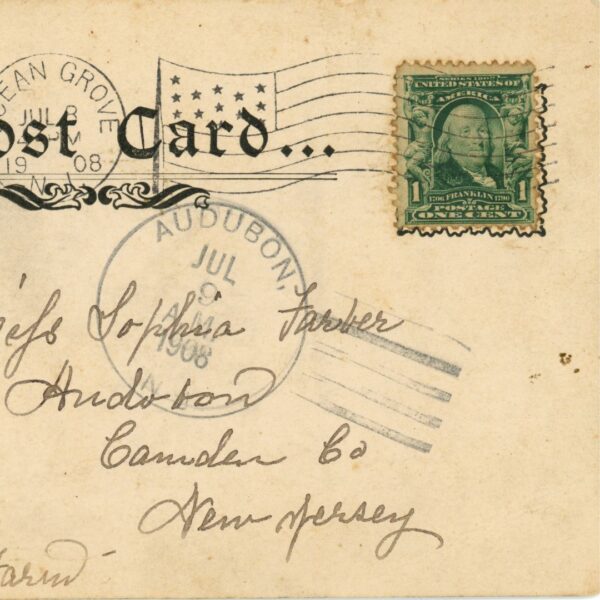 CEAN GROVE
JUL 8
PM
19 08
N.J.
ost Card...
SERIES 1902
UNITED STATES OF
AMERICA
1 1
1706 FRANKLIN 1790
POSTAGE
ONE CENT
AUDUBON,
JUL
9
A.M.
1908
N
iss Sophia Farber
Audobon
Camden Co
New Jersey